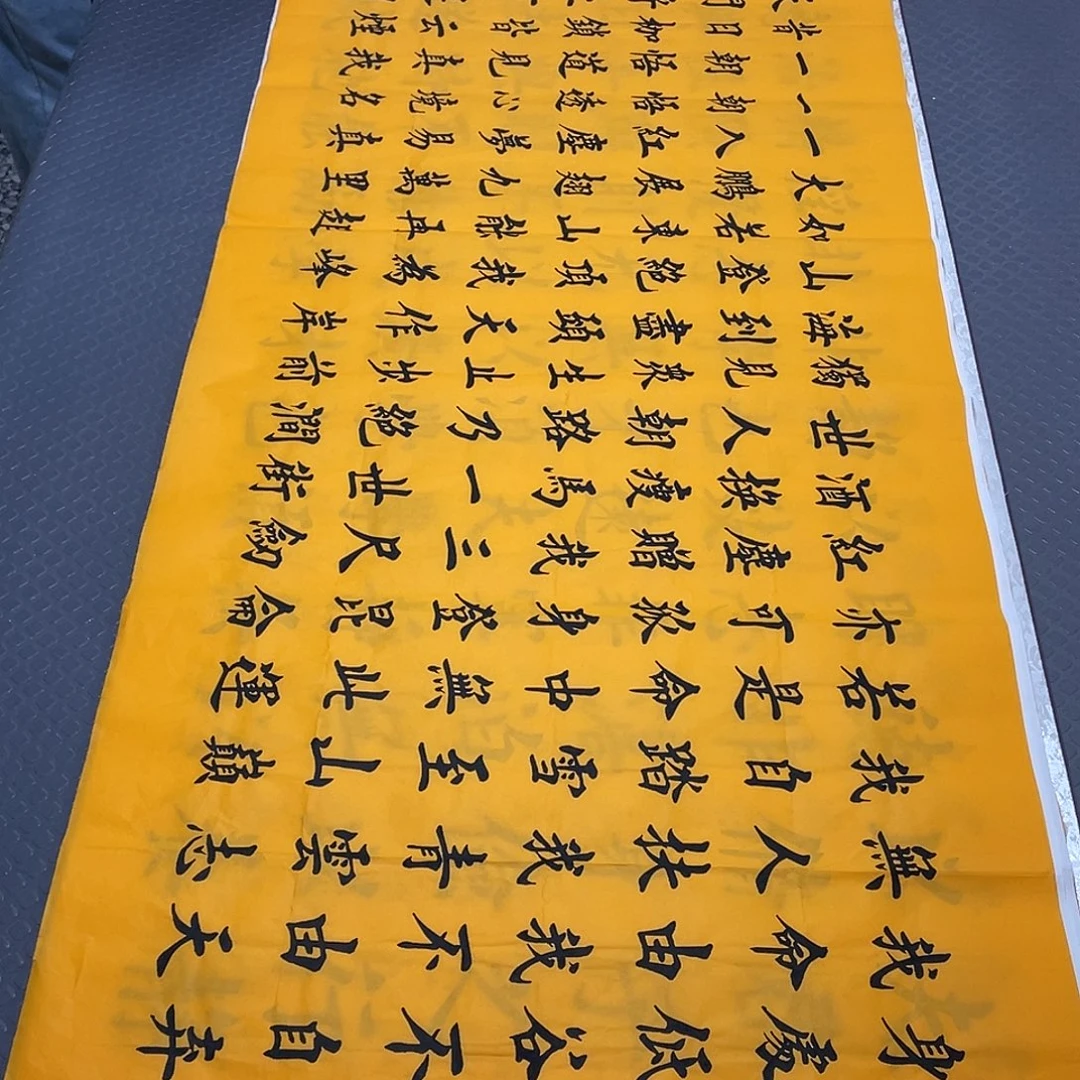 身處低谷不自弃
我命由我不由天
無人扶我青雲志
我自踏雪至山巔
若是命中無此運
亦叮孤身登昆侖
紅塵贈我三尺劍
酒換瘦馬一世街
世人朝路乃絕澗
獨見眾生止步前
海到盡頭天作岸
山登絕頂我為峰
如若東山能再起
大鵬展翅九萬里
一入紅塵夢易真
一朝悟透心境名
一朝悟道見真我
昔日枷鎖皆云煙